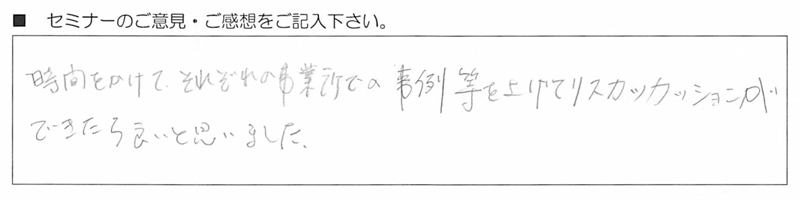 ■ セミナーのご意見・ご感想をご記入下さい。
時間をかけて、それぞれの事業所での事例等を上げてリスカッカッションが
できたら良いと思いました。